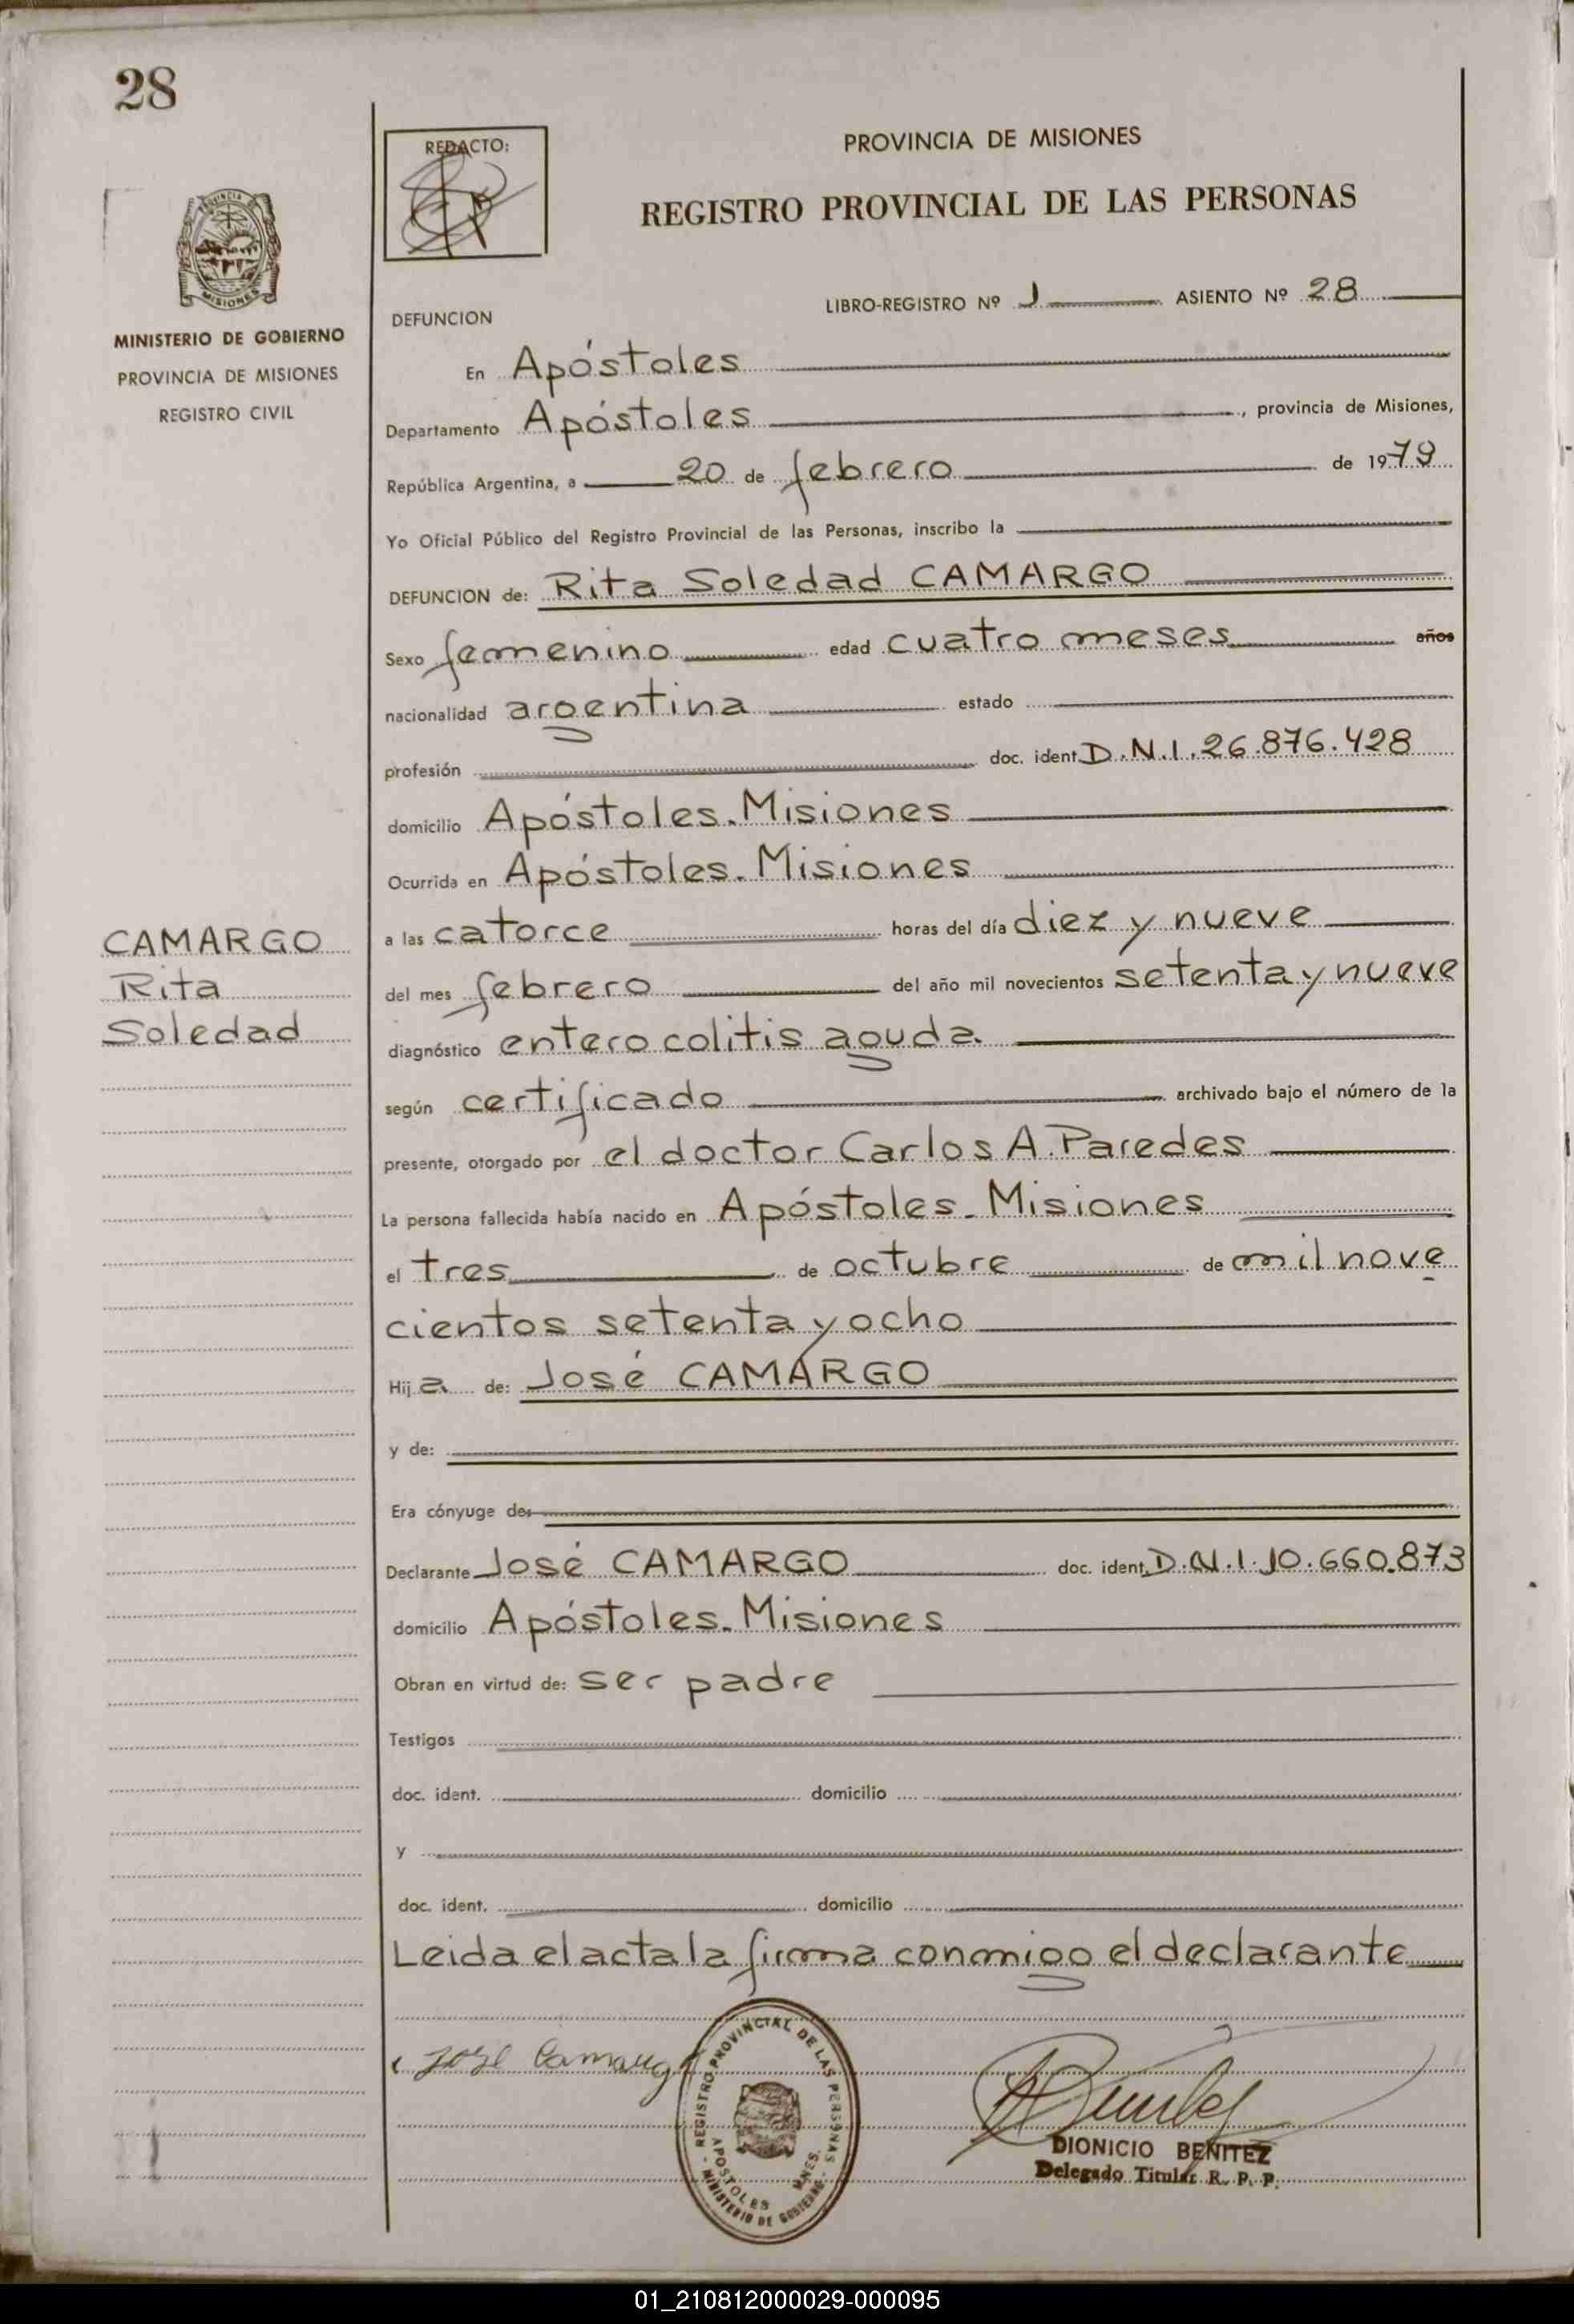 28
REDACTO:
PROVINCIA DE MISIONES
REGISTRO PROVINCIAL DE LAS PERSONAS
PROVINCIA DE
MISIONES
MINISTERIO DE GOBIERNO
PROVINCIA DE MISIONES
REGISTRO CIVIL
LIBRO-REGISTRO Nº 1 ASIENTO Nº 28
DEFUNCION
En Apóstoles
Departamento Apóstoles, provincia de Misiones,
República Argentina, a 20 de febrero de 1979
Yo Oficial Público del Registro Provincial de las Personas, inscribo la
DEFUNCION de: Rita Soledad CAMARGO
Sexo femenino edad cuatro meses años
nacionalidad argentina estado
profesión doc. ident. D.N.I. 26.876.428
domicilio Apóstoles. Misiones
Ocurrida en Apóstoles. Misiones
a las catorce horas del día diez y nueve
del mes febrero del año mil novecientos setenta y nueve
diagnóstico enterocolitis aguda
según certificado archivado bajo el número de la
presente, otorgado por el doctor Carlos A. Paredes
La persona fallecida había nacido en Apóstoles - Misiones
el tres de octubre de mil nove
cientos setenta y ocho
Hija de: José CAMARGO
y de:
Era cónyuge de:
Declarante José CAMARGO doc. ident. D.N.I. 10.660.873
domicilio Apóstoles. Misiones
Obran en virtud de: ser padre
Testigos
doc. ident. domicilio
y
doc. ident. domicilio
Leida el acta la firma conmigo el declarante
CAMARGO
Rita
Soledad
Jose Camargo
REGISTRO PROVINCIAL DE LAS PERSONAS
APOSTOLES MNES.
MINISTERIO DE GOBIERNO
DIONICIO BENITEZ
Delegado Titular R. P. P.
01_210812000029-000095